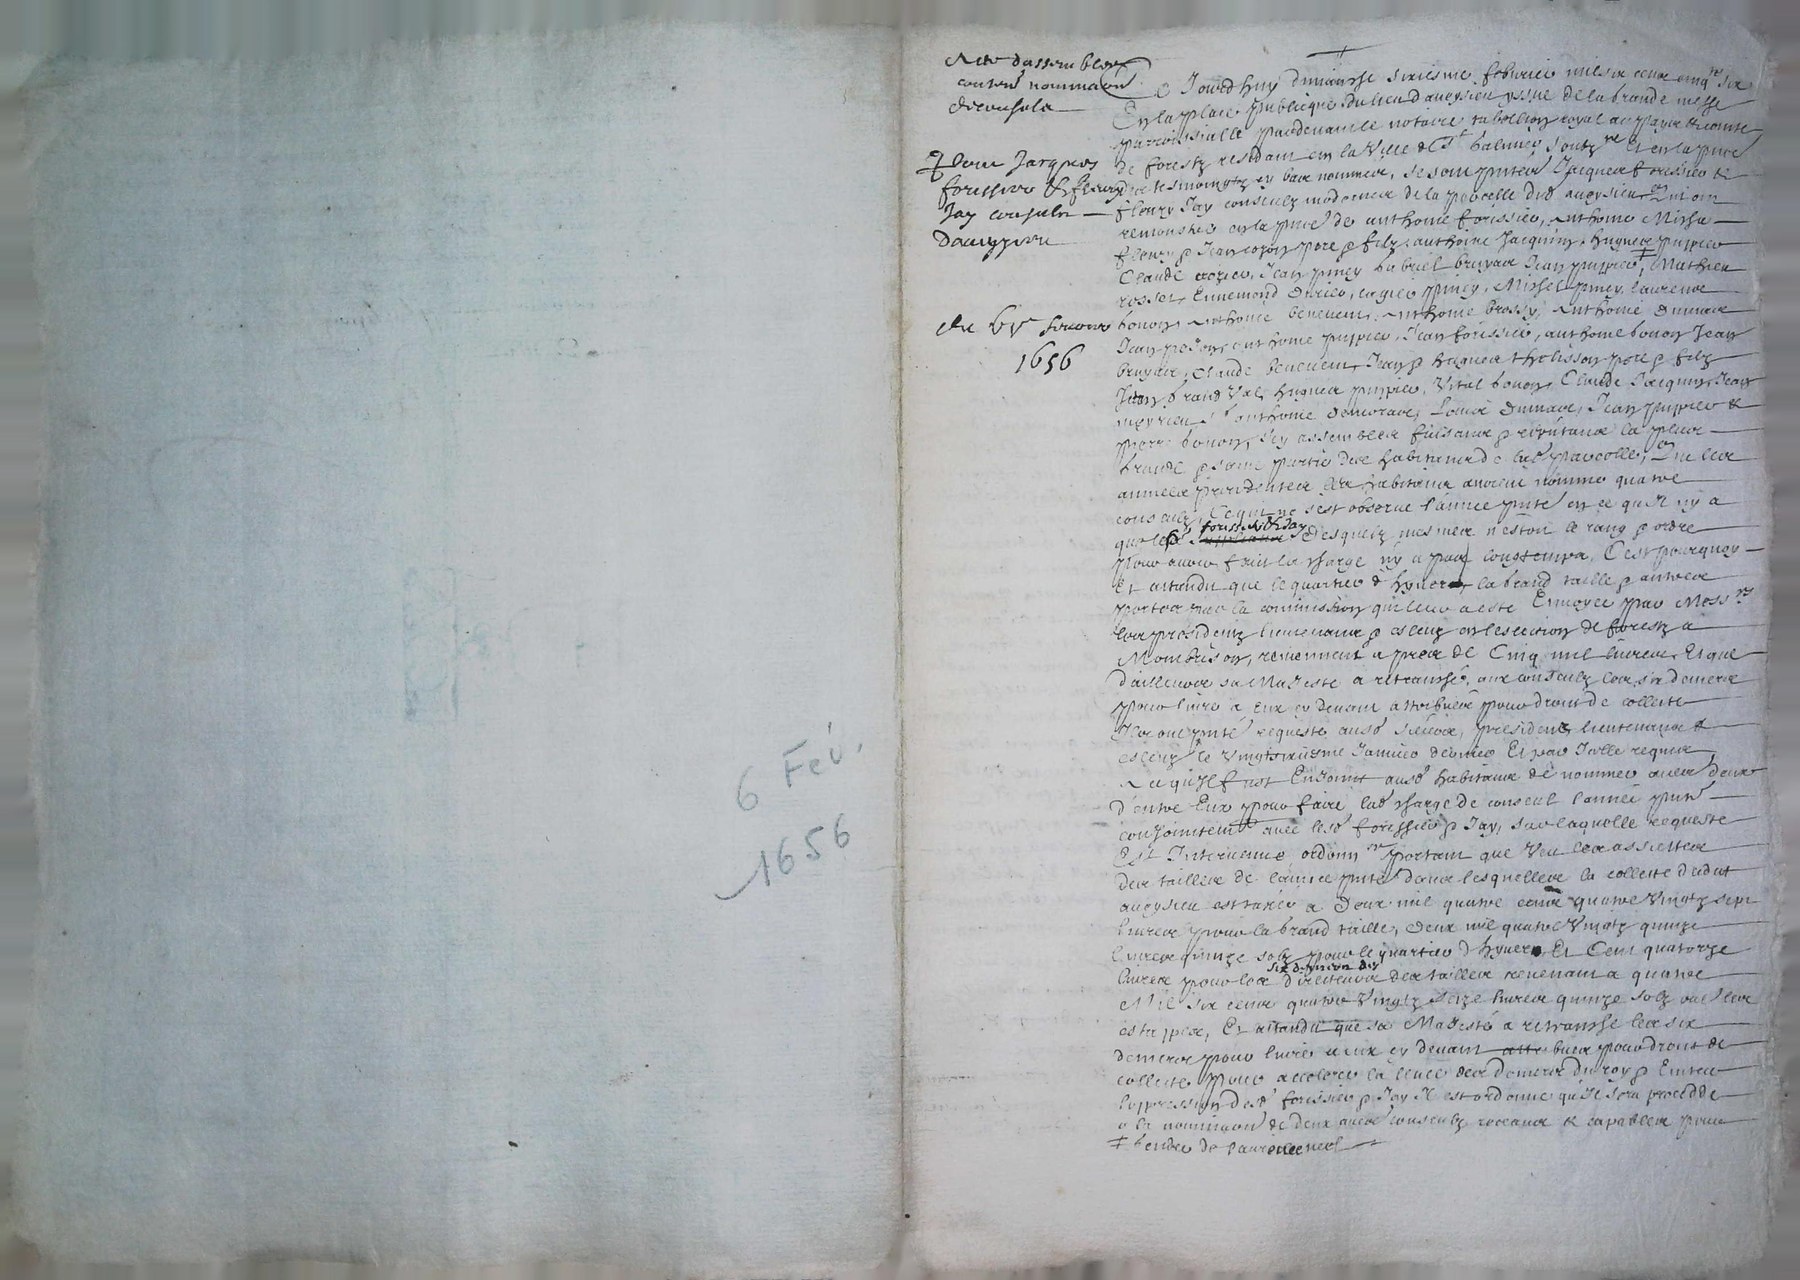 6 Fév.
1656
Acte dassemblee
conten' nomina'on
de consulz
Pour Jacques
forissier & fleury
Jay consulz
daveyzieu
du vi^e febvrier
1656
Ce Jourdhuy dimanche sixiesme febvrier mil six cent cinq^te six
En la place publicque du lieu d'aveyzieu yssue de la grande messe
parroissialle pardevant le notaire tabellion royal au pays & comté
de forestz residant en la ville de S^t galmier soubz^né et en la p'nce
des tesmoingtz cy bas nommez, se sont p'ntez Jacques forissier &
fleury Jay consulz modernes de la parcelle dud aveyzieu Qui ont
remonstré en la p'nce de anthoine forissier, anthoine Micha
fleury & Jean coron pere & filz, anthoine Jacquin, hugues pupier
Claude crozier, Jean piney gabriel bruyas Jean pupier, Mathieu
rosset, Ennemond Murier, piney, Michel piney, laurence
bonon, anthoine benevent, anthoine brossy, anthoine dumas
Jean anthoine pupier, Jean forissier, anthoine bonon Jean
bruyas, Claude benevent, Jean & hugues thelisson pere & filz
Jean grand val, hugues pupier, vital bonon, Claude Jacquin, Jean
anthoine Louis dumas, Jean pupier &
pierre bonon, Icy assemblez faisant & reputans la plus
grande & saine partie des habitans de lad parcelle, Que les
annees precedentes les habitans avoient nomme quatre
consulz, Ce qui ne s'est observe l'annee p'nte en ce quil ny a
que lesd forissier & Jay desquelz mesmes n'estoit le rang & ordre
pour avoir faict la charge ny a pas longtemps, C'est pourquoy
Et attandu que le quartier d'hyver, la grand taille & autres
portez par la commission qui leur a este Envoyee par Mess^rs
les presidentz lieutenant & esleuz en leslection de forestz a
Montbrison, reviennent a pres de Cinq mil livres, Et que
dailleurs sa Majesté a retranché, aux consulz les six deniers
pour livre a eux cy devant attribuez pour droict de collecte
Ilz ont p'nté requeste ausd sieurs, president, lieutenant &
esleuz le vingtroisiesme Janvier dernier Et par Icelle requis
A ce qu'il fust Enjoinct ausd habitans de nommer autres deux
d'entre Eux pour faire lad charge de consul l'annee p'nte
conjoinctem^t avec lesd forissier & Jay, sur laquelle requeste
Est Intervenue ordonn^ce portant que veu les assiettes
des tailles de l'annee p'nte dans lesquelles la collecte dudit
aveyzieu est taxée a deux mil quatre cent quatre vingtz sept
livres pour la grand taille, deux mil quatre vingtz quinze
livres quinze solz pour le quartier d'hyver Et Cent quatorze
livres pour les six deniers des directeurs des tailles revenant a quatre
Mil six cent quatre vingtz seize livres quinze solz
estapes, Et attandu que sa Majesté a retranché les six
deniers pour livre a eux cy devant attribuez pour droict de
collecte pour accelerer la levee des deniers du roy & Eviter
l'oppression desd forissier & Jay Il est ordonné qu'il sera proceddé
a la nomina'on de deux autres consulz receans & capables pour